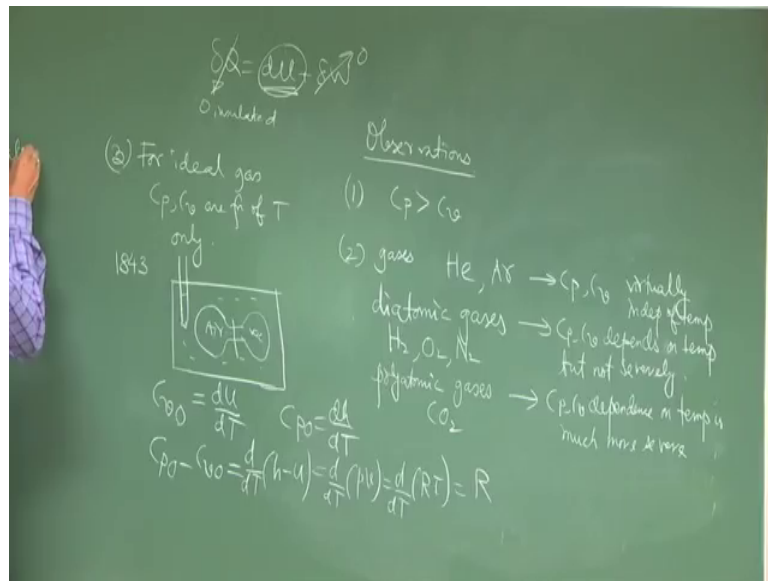 δQ = dU + δW 0
0, insulated
(3) For ideal gas
Cp, Cv are fn of T
only.
1843
Air
vac
Cv0 = du/dT Cp0 = dh/dT
Cp0 - Cv0 = d/dT (h-u) = d/dT (pv) = d/dT (RT) = R
Observations
(1) Cp > Cv
(2) gases He, Ar → Cp, Cv virtually
indep of temp
diatomic gases → Cp, Cv depends on temp
H2, O2, N2 but not severely.
polyatomic gases → Cp, Cv dependence on temp is
CO2 much more severe